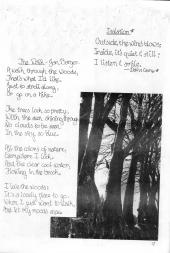 The Walk - Jan Berger
A walk through the woods,
That's what I'd like.
Just to stroll along,
Or go on a hike.
The trees look so pretty,
With the sun shining through
No clouds to be seen
In the sky, so blue.
All the colors of nature,
Everywhere I look
And the clear cool water
Flowing in the brook.
I love the woods
It's a lovely place to go.
When I just want to walk,
And let my moods
Isolation
Outside, the wind blows
Inside, it's quiet & still;
I listen & smile.